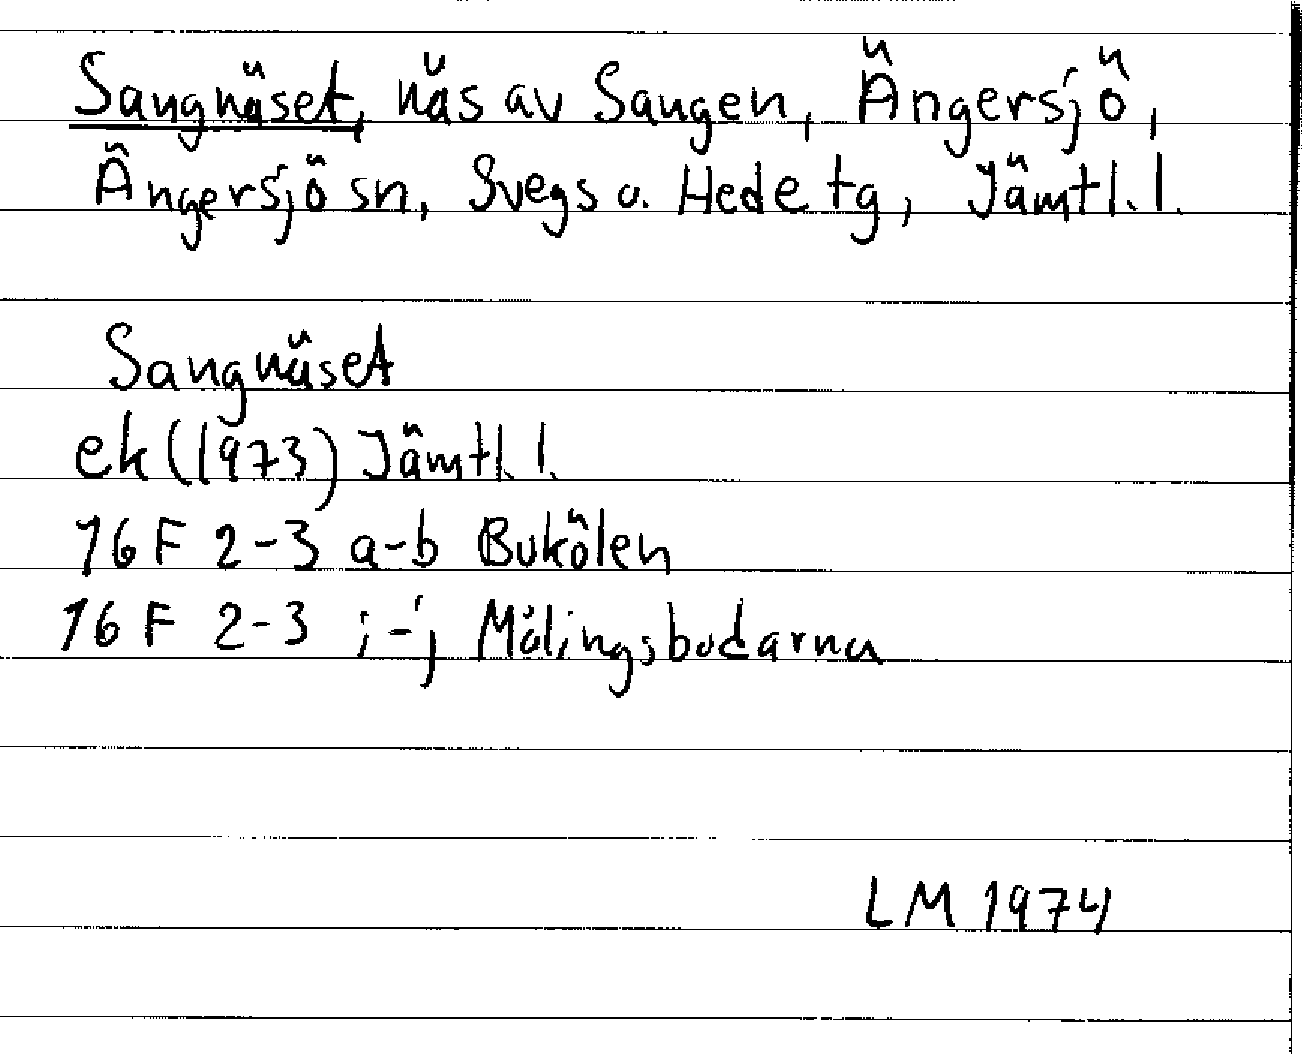 Sangnäset, näs av Sangen, Ängersjö,
Ängersjö sn, Svegs o. Hede tg, Jämtl. l.
Sangnäset
ek (1973) Jämtl. l.
16 F 2-3 a-b Bukölen
16 F 2-3 i-j Målingsbodarna
LM 1974